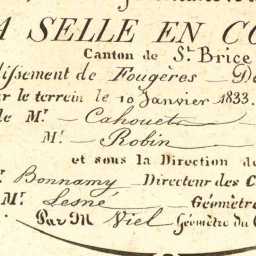 A SELLE EN CO
Canton de St. Brice
dissement de Fougères — Dé
ur le terrein le 10 Janvier 1833.
de Mr. — Cahouet
Mr. — Robin
et sous la Direction de
r. Bonnamy — Directeur des C
Mr. Lesné — Géomètre
Par M Viel Géomètre du C